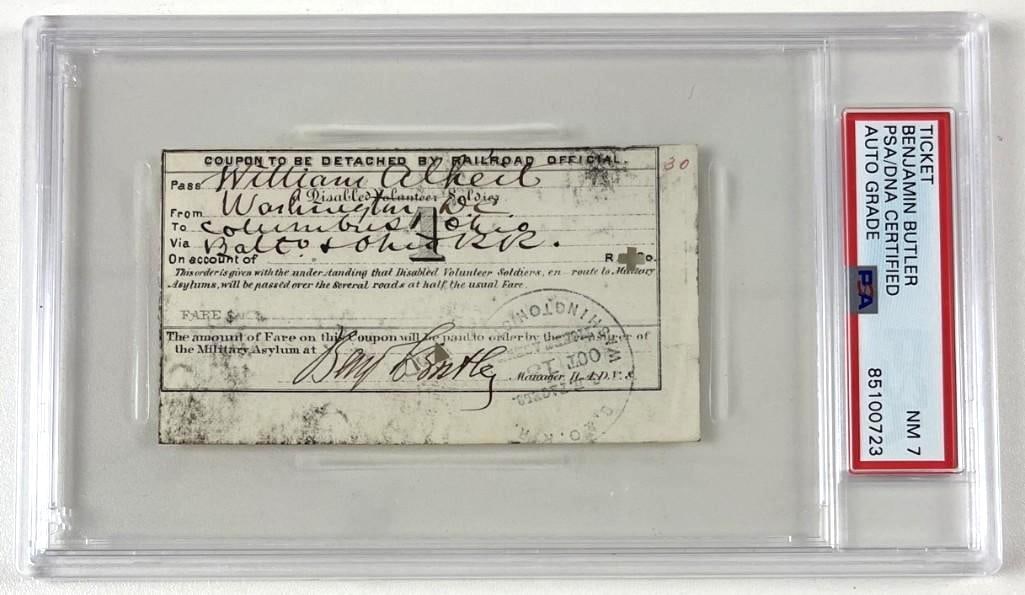 COUPON TO BE DETACHED BY RAILROAD OFFICIAL.
30
Pass William
A Disabled Volunteer Soldier
From Washington D.C.
To Columbus Ohio
1
Via Balto. & Ohio R.R.
On account of R Co.
This order is given with the understanding that Disabled Volunteer Soldiers, en route to Military
Asylums, will be passed over the Several roads at half the usual Fare.
FARE $
The amount of Fare on this Coupon will be paid to order by the Treasurer of
the Military Asylum at
Benj Butler
Manager
WASHINGTON
OCT
TICKET
BENJAMIN BUTLER
PSA/DNA CERTIFIED
AUTO GRADE
NM 7
85100723
PSA